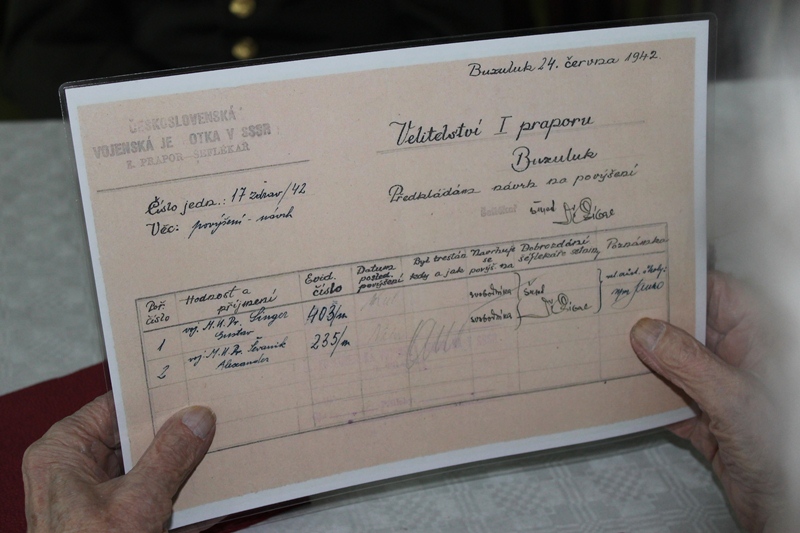 Buzuluk 24. června 1942.
ČESKOSLOVENSKÁ
VOJENSKÁ JE OTKA V SSSR
Velitelství I praporu
Buzuluk
Číslo jedn.: 17 zdrav/42
Věc: povýšení - návrh
Předkládám návrh na povýšení
Poř. číslo
Hodnost a příjmení
Evid. číslo
Datum posled. povýšení
Byl trestán kdy a jak
Navrhuje se povýš. na
Dobrozdání
Poznámka
1
voj. M.U.Dr. Singer Gustav
403/m
svobodníka
2
voj. M.U.Dr.
Alexander
235/m
svobodníka